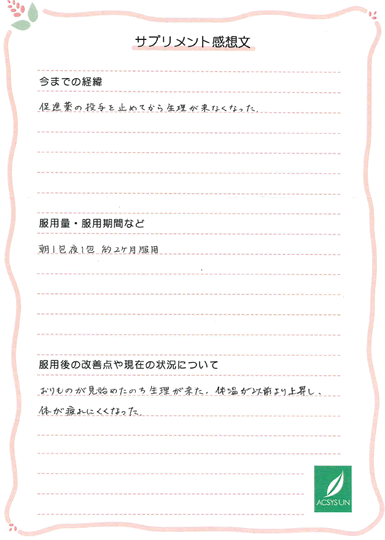 サプリメント感想文
今までの経緯
促進薬の投与を止めてから生理が来なくなった.
服用量・服用期間など
朝1包夜1包 約2ヶ月服用
服用後の改善点や現在の状況について
おりものが見始めたのち生理が来た. 体温が以前より上昇し、
体が疲れにくくなった.
ACSYSUN